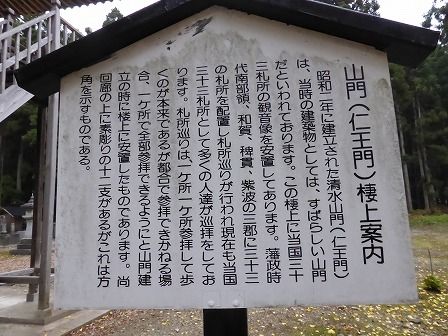 山門（仁王門）楼上案内
昭和二年に建立された清水山門（仁王門）
は、当時の建築物としては、すばらしい山門
だといわれております。この楼上に当国三十
三札所の観音像を安置してあります。藩政時
代南部領、和賀、稗貫、紫波の三郡に三十三
の札所を配置し札所巡りが行われ現在も当国
三十三札所として多くの人達が巡拝をしてお
ります。札所巡りは一ケ所一ケ所参拝して歩
くのが本来であるが都合で参拝できかねる場
合、一ケ所で全部参拝できるようにと山門建
立の時に楼上に安置したものであります。尚
回廊の上に素彫りの十二支があるがこれは方
角を示すものである。